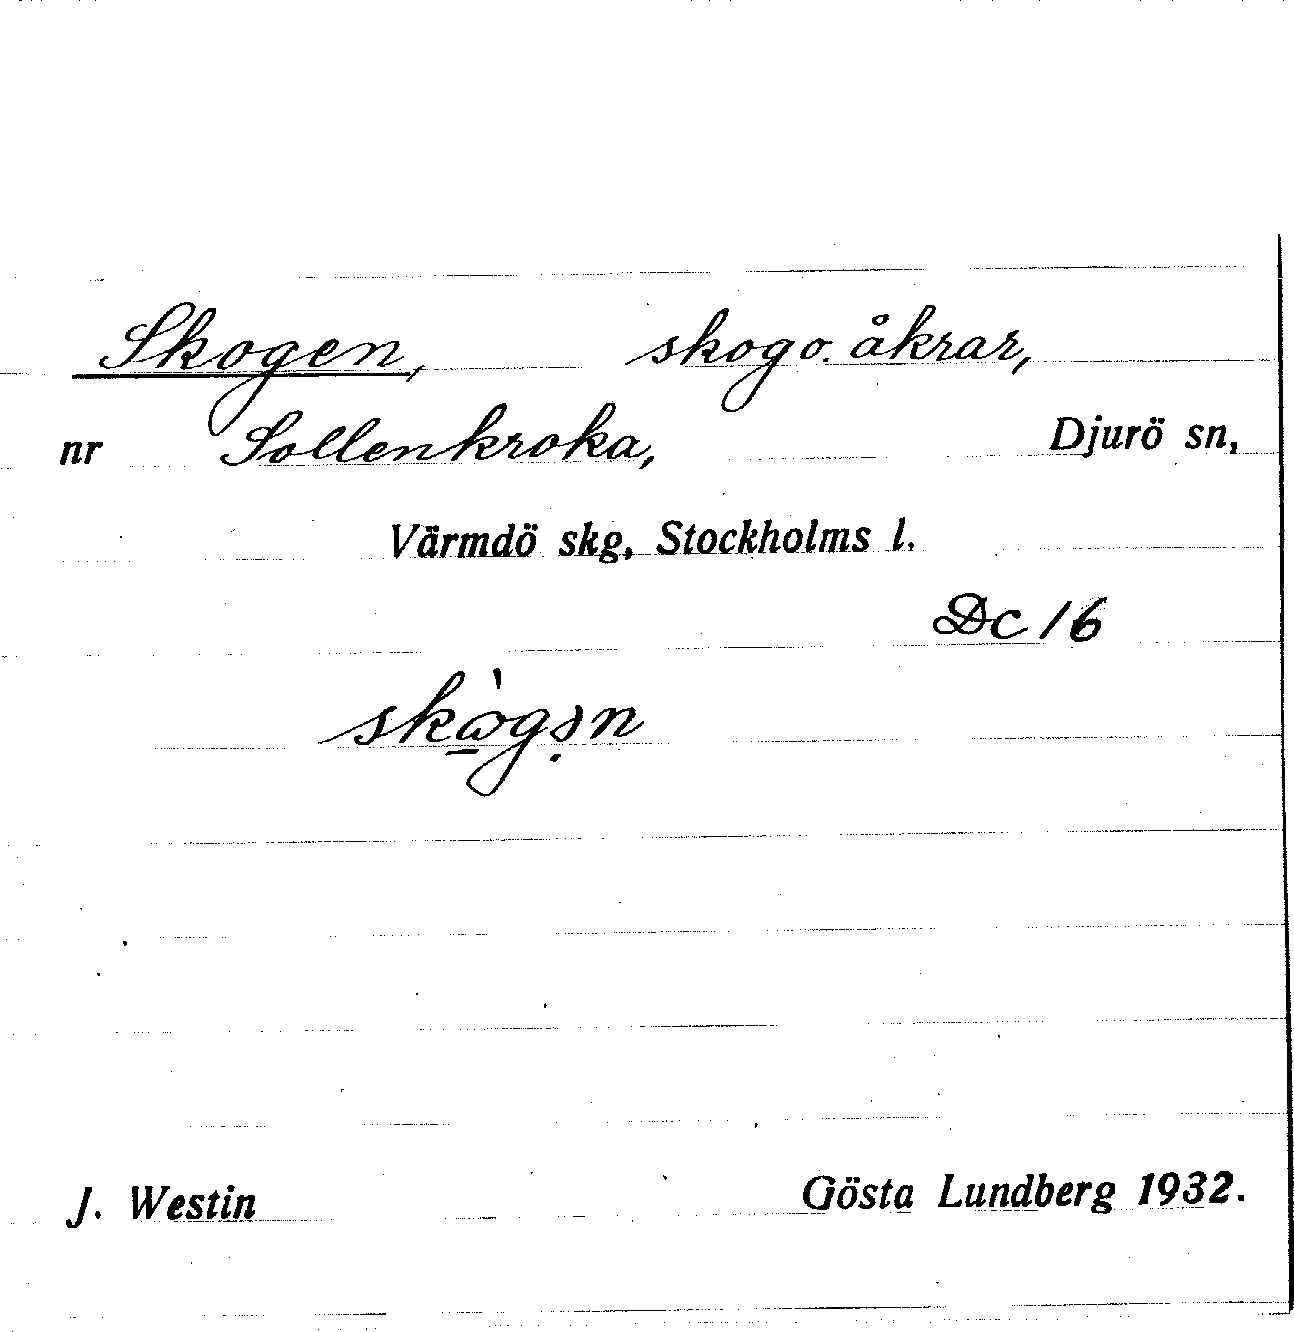 Skogen, skog o. åkrar,
nr Sollenkroka, Djurö sn,
Värmdö skg, Stockholms l.
Dc 16
skὼgə̣n
J. Westin Gösta Lundberg 1932.